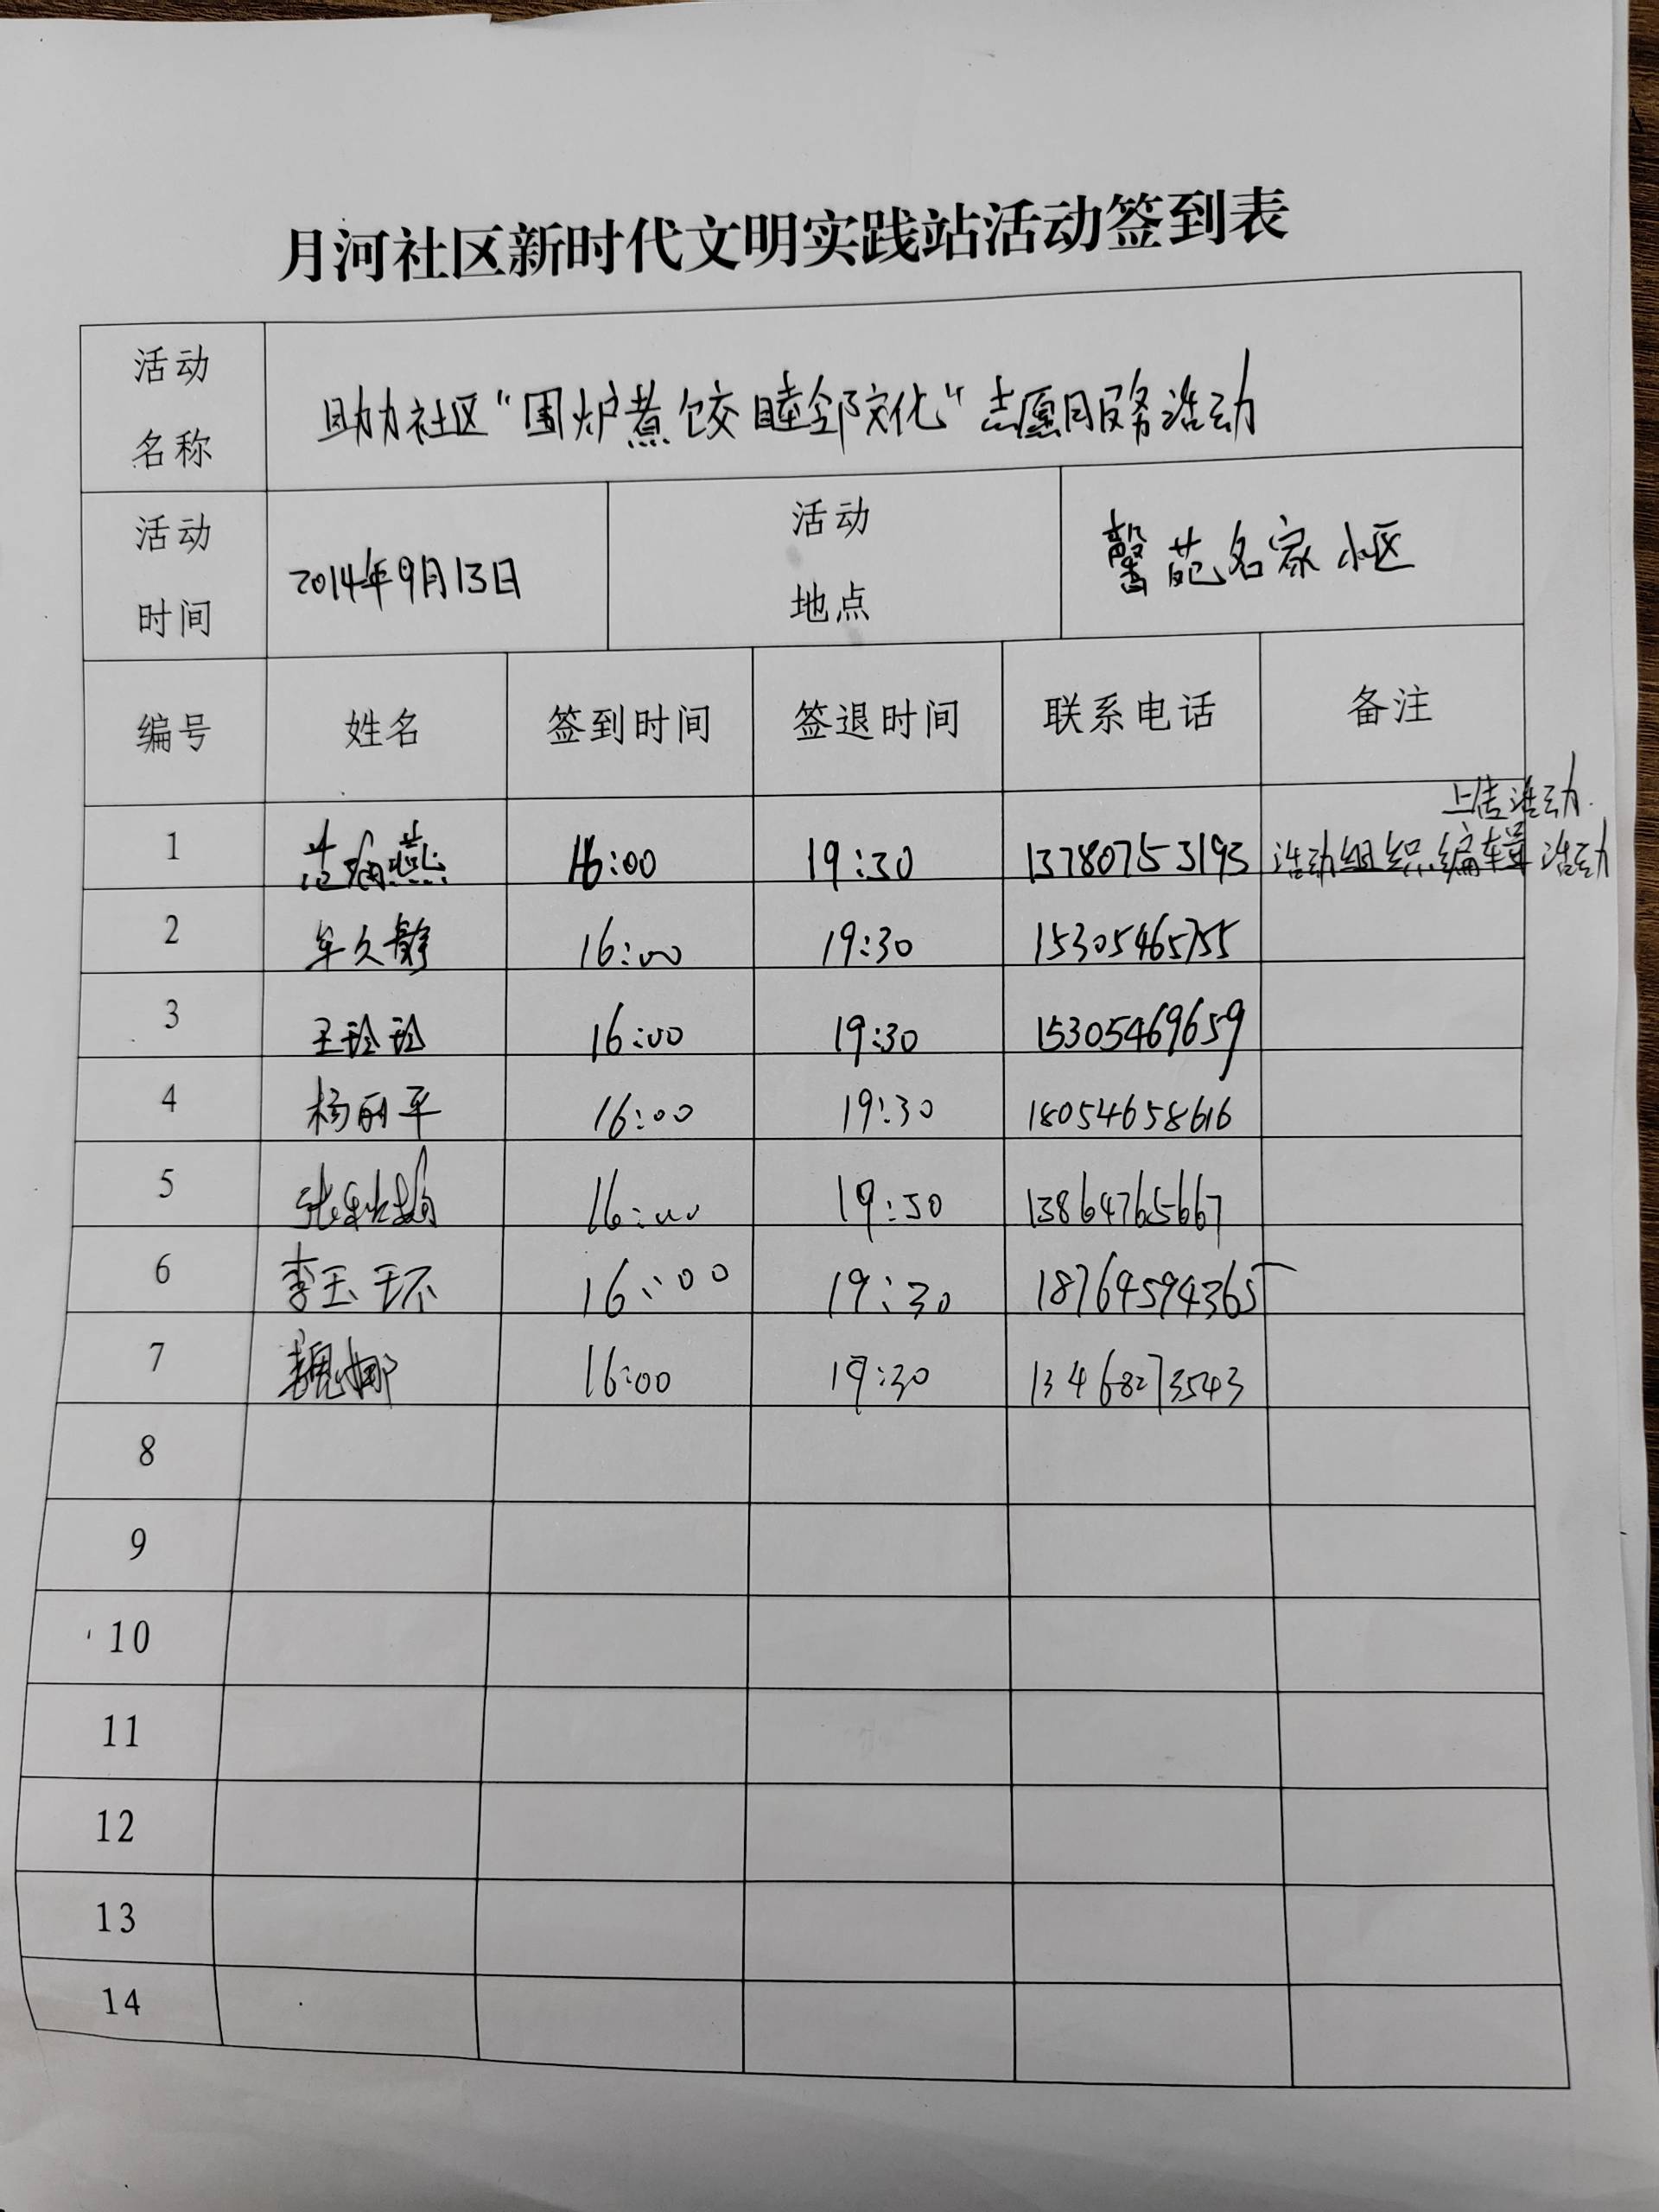 月河社区新时代文明实践站活动签到表
活动名称 助力社区“围炉煮饺 睦邻文化”志愿服务活动
活动时间 2014年9月13日 活动地点 馨苑名家小区
编号 姓名 签到时间 签退时间 联系电话 备注
上传活动
1 16:00 19:30 13780753193 活动组织编辑活动
2 牟久静 16:00 19:30 15305465755
3 王玲玲 16:00 19:30 15305469659
4 杨丽平 16:00 19:30 18054658616
5 16:00 19:30 13864765667
6 李玉环 16:00 19:30 18764594365
7 魏娜 16:00 19:30 13468273543
8
9
10
11
12
13
14